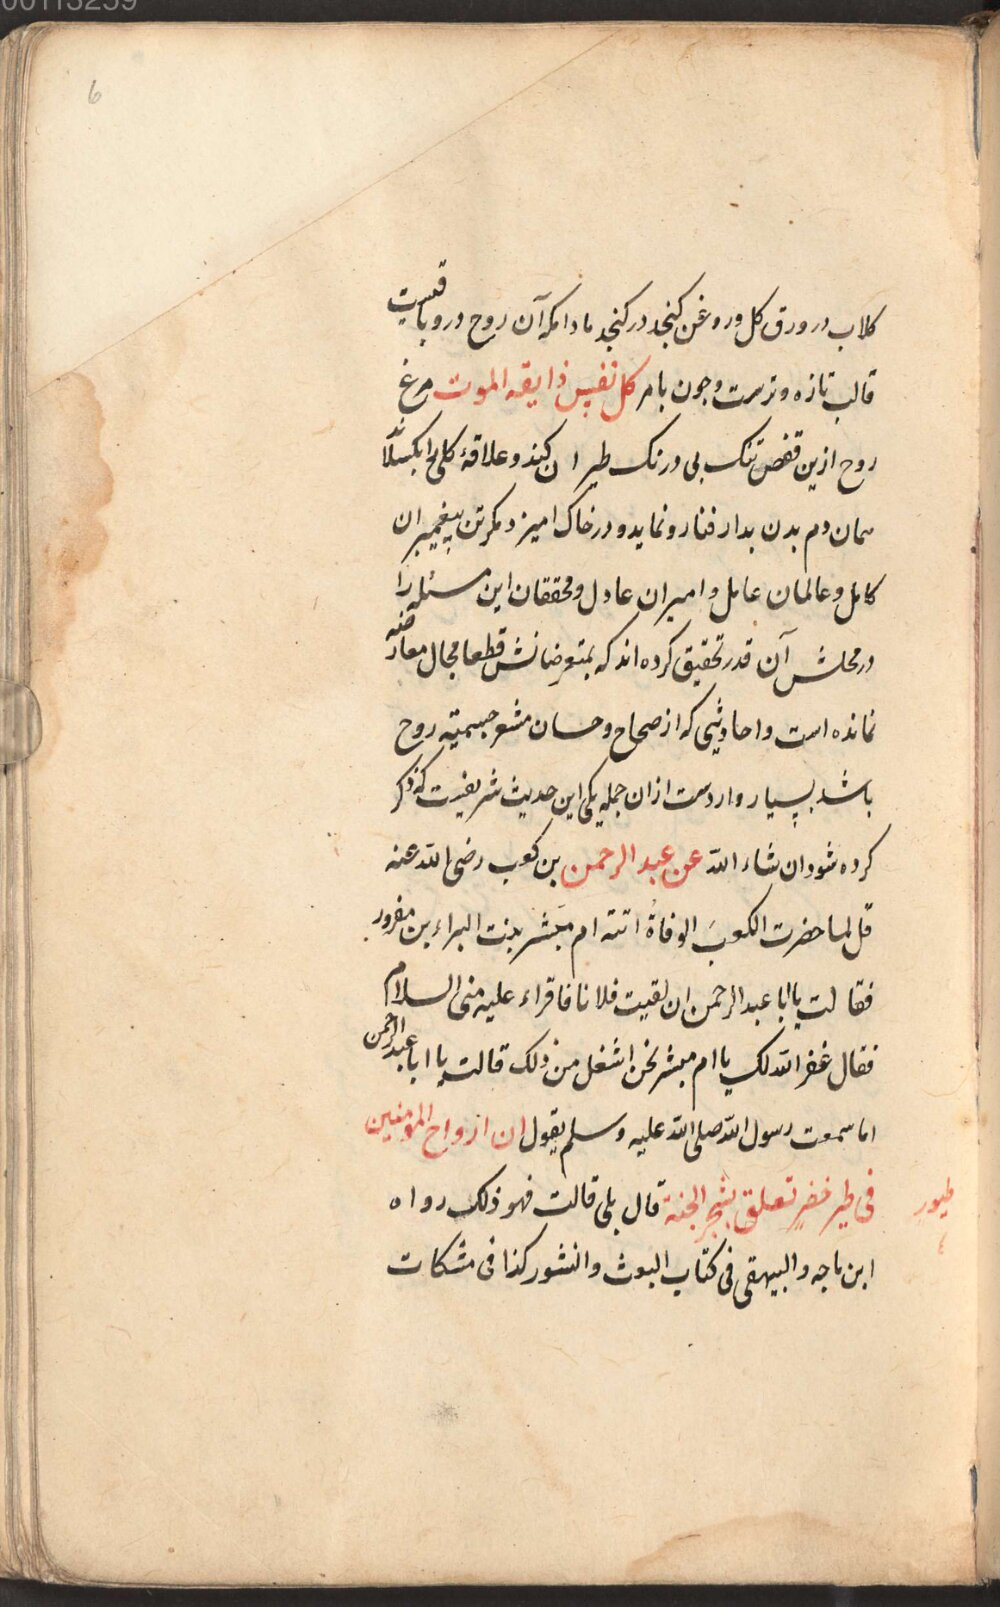 00113259
6
کلاب در ورق کل و روغن کنجد در کنجد مادامکه آن روح درو باقیست
قالب تازه و ترست و چون بامر کل نفس ذایقه الموت مرغ
روح ازین قفص تنک بی درنک طیران کند و علاقۀ کلی را بکسلاند
همان دم بدن بدار فنا رو نماید و در خاک امیزد مکر تن پیغمبران
کامل و عالمان عامل و امیران عادل و محققان این مسئله را
در محلش آن قدر تحقیق کرده اند که بمتعرضانش قطعا مجال معارضه
نمانده است و احادیثی که از صحاح و حسان مشعر جسمیته روح
باشد بسیار واردست ازان جمله یکی این حدیث شریفست که ذکر
کرده شود ان شاء الله عن عبد الرحمن بن کعب رضی الله عنه
قل لما حضرت الکعبَ الوفاةُ اتته ام مبشر بنت البراء بن مغرور
فقالت یا ابا عبد الرحمن ان لقیت فلانا فاقراء علیه منی السلام
فقال غفر الله لک یا ام مبشر نحن اشغل من ذلک قالت یا ابا عبد الرحمن
اما سمعت رسول الله صلی الله علیه و سلم یقول ان ارواح المومنین
فی طیر خضر تعلق بشجر الجنة قال بلی قالت فهو ذلک رواه
طیور
ابن ماجه و البیهقی فی کتاب البعث و النشور کذا فی مشکات